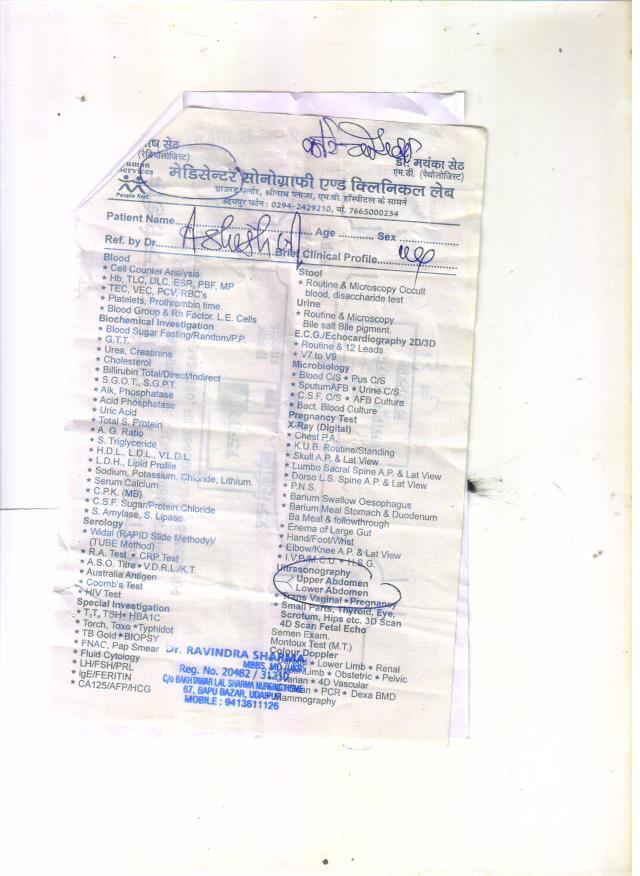 ाष सेठ
(रेडियोलोजिस्ट)
डॉ. मयंका सेठ
एम.डी. (पेथोलोजिस्ट)
Human
Services
People First
मेडिसेन्टर सोनोग्राफी एण्ड क्लिनिकल लेब
ग्राउण्ड फ्लोर, श्रीनाथ प्लाजा, एम.बी. हॉस्पीटल के सामने
उदयपुर फोन : 0294-2429210, मो. 7665000234
Patient Name.......... Age .......... Sex ..........
Ref. by Dr.......... Brief Clinical Profile..........
Blood
* Cell Counter Analysis
* Hb, TLC, DLC, ESR, PBF, MP
* TEC, VEC, PCV, RBC's
* Platelets, Prothrombin time.
* Blood Group & Rh Factor. L.E. Cells
Biochemical Investigation
* Blood Sugar Fasting/Random/P.P.
* G.T.T.
* Urea, Creatinine
* Cholesterol
* Billirubin Total/Direct/Indirect
* S.G.O.T., S.G.P.T.
* Alk, Phosphatase
* Acid Phosphatase
* Uric Acid
* Total S. Protein
* A. G. Ratio
* S. Triglyceride
* H.D.L., L.D.L., V.L.D.L
* L.D.H., Lipid Profile
* Sodium, Potassium, Chloride, Lithium.
* Serum Calcium
* C.P.K. (MB)
* C.S.F. Sugar/Protein.Chloride
* S. Amylase, S. Lipase
Serology
* Widal (RAPID Slide Methody)/
(TUBE Method)
* R.A. Test * CRP Test
* A.S.O. Titre * V.D.R.L./K.T.
* Australia Antigen
* Coomb's Test
* HIV Test
Special Investigation
* T3T, TSH * HBA1C
* Torch, Toxo * Typhidot
* TB Gold * BIOPSY
* FNAC, Pap Smear
* Fluid Cytology
* LH/FSH/PRL
* IgE/FERITIN
* CA125/AFP/HCG
Stool
* Routine & Microscopy Occult
blood, disaccharide test
Urine
* Routine & Microscopy
Bile salt Bile pigment.
E.C.G./Echocardiography 2D/3D
* Routine & 12 Leads
* V7 to V9
Microbiology
* Blood C/S * Pus C/S
* SputumAFB * Urine C/S
* C.S.F. C/S * AFB Culture
* Bact. Blood Culture
Pregnancy Test
X-Ray (Digital)
* Chest P.A.
* K.U.B. Routine/Standing
* Skull A.P. & Lat View
* Lumbo Sacral Spine A.P. & Lat View
* Dorso L.S. Spine A.P. & Lat View
* P.N.S.
* Barium Swallow Oesophagus
* Barium Meal Stomach & Duodenum
Ba Meal & followthrough
* Enema of Large Gut
* Hand/Foot/Wrist
* Elbow/Knee A.P. & Lat View
* I.V.P/M.C.U. * H.S.G.
Ultrasonography
Upper Abdomen
Lower Abdomen
* Trans Vaginal * Pregnancy
* Small Parts, Thyroid, Eye,
Scrotum, Hips etc. 3D Scan
4D Scan Fetal Echo
Semen Exam.
Montoux Test (M.T.)
Colour Doppler
* Lower Limb * Renal
Limb * Obstetric * Pelvic
* 4D Vascular
* PCR * Dexa BMD
Dr. RAVINDRA SHARMA
MBBS, MD
Reg. No. 20482 / 31210
C/o BAKHTAWAR LAL SHARMA NURSING HOME
67, BAPU BAZAR, UDAIPUR
MOBILE : 9413611126